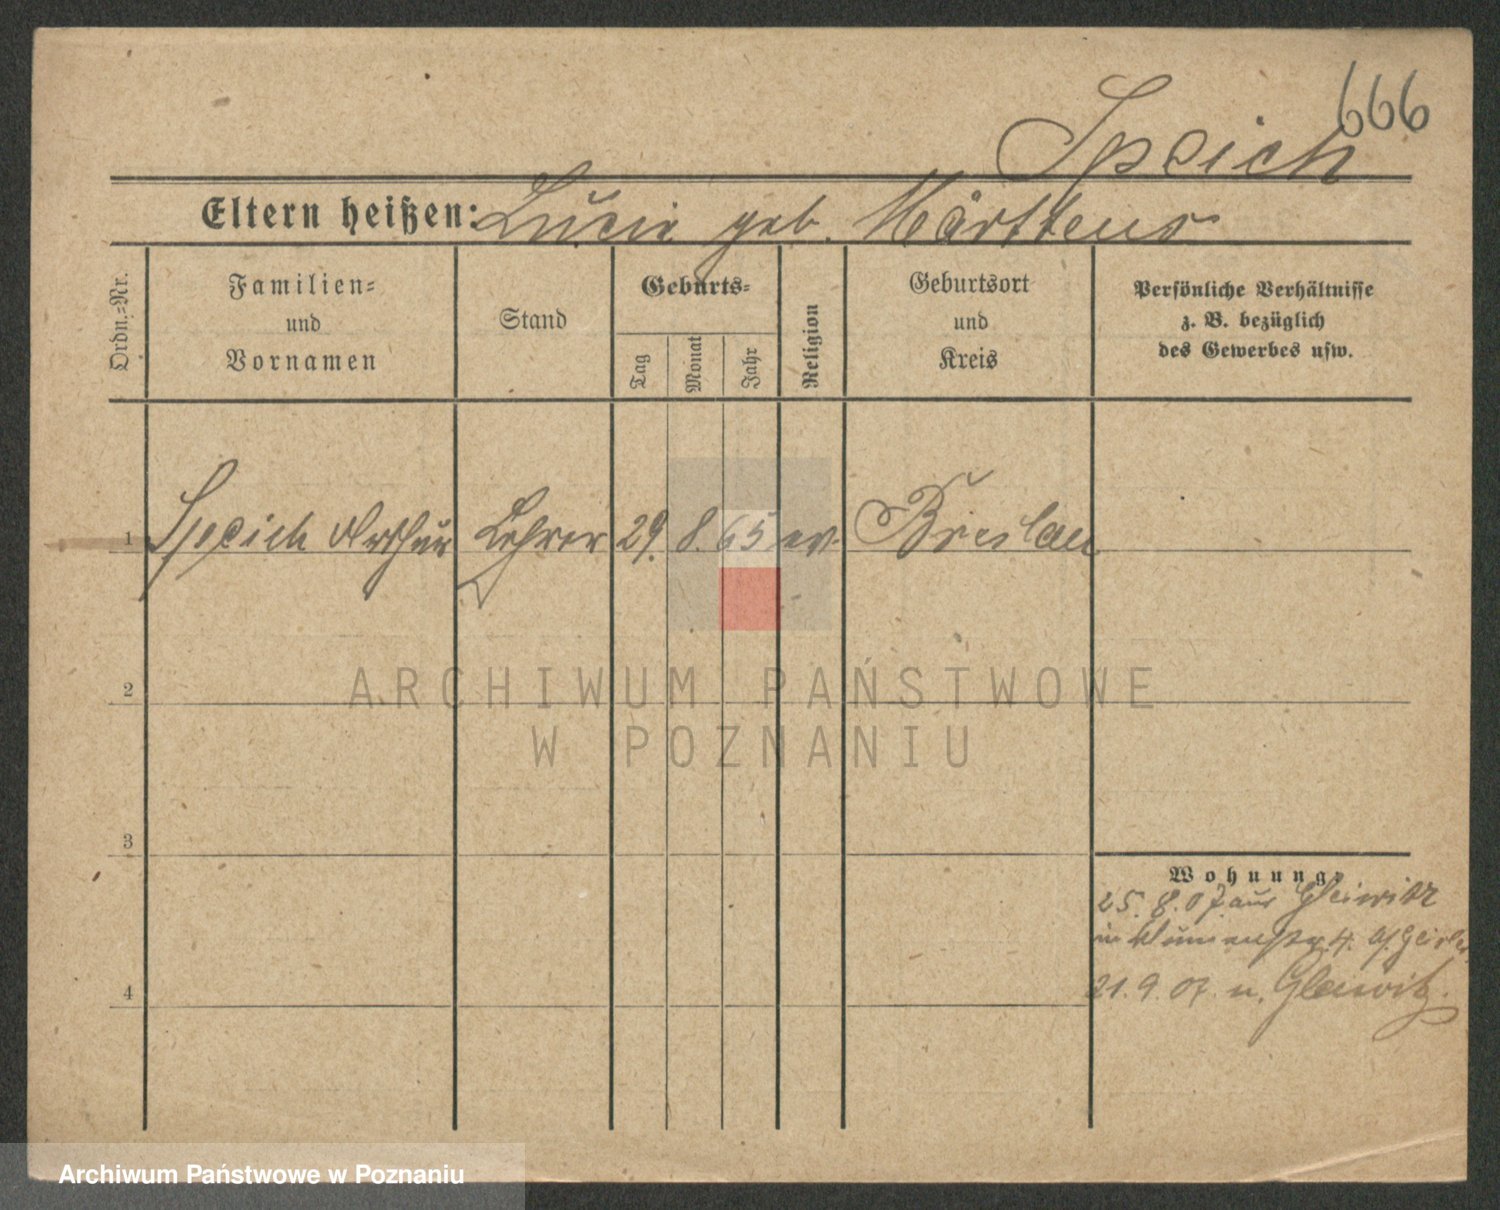 666
Speich
Eltern heißen: Lucie geb. Märttens
Ordn.-Nr.
Familien-
und
Vornamen
Stand
Geburts-
Tag
Monat
Jahr
Religion
Geburtsort
und
Kreis
Persönliche Verhältnisse
z. B. bezüglich
des Gewerbes usw.
1 Speich Arthur Lehrer 29. 8. 65 ev Breslau
2
ARCHIWUM PAŃSTWOWE
W POZNANIU
3
Wohnung
25. 8. 07 aus Gleiwitz
in 4.
4
21. 9. 07. n. Gleiwitz.
Archiwum Państwowe w Poznaniu